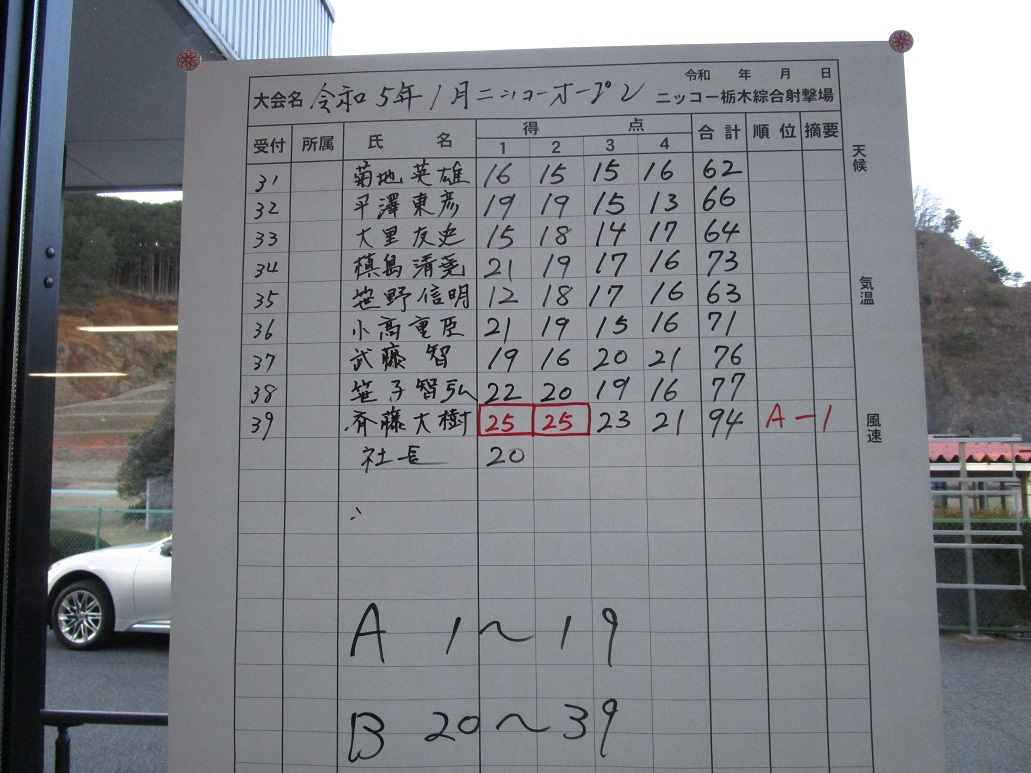 令和 年 月 日
大会名 令和5年1月ニッコーオープン ニッコー栃木綜合射撃場
受付 所属 氏 名 得 点 合計 順位 摘要
1 2 3 4
天候
31 菊地英雄 16 15 15 16 62
32 平澤東彦 19 19 15 13 66
33 大里友史 15 18 14 17 64
34 槙島清尭 21 19 17 16 73
気温
35 笹野信明 12 18 17 16 63
36 小高重臣 21 19 15 16 71
37 武藤智 19 16 20 21 76
38 笹子智弘 22 20 19 16 77
39 斉藤大樹 25 25 23 21 94 A-1
風速
社長 20
A 1〜19
B 20〜39